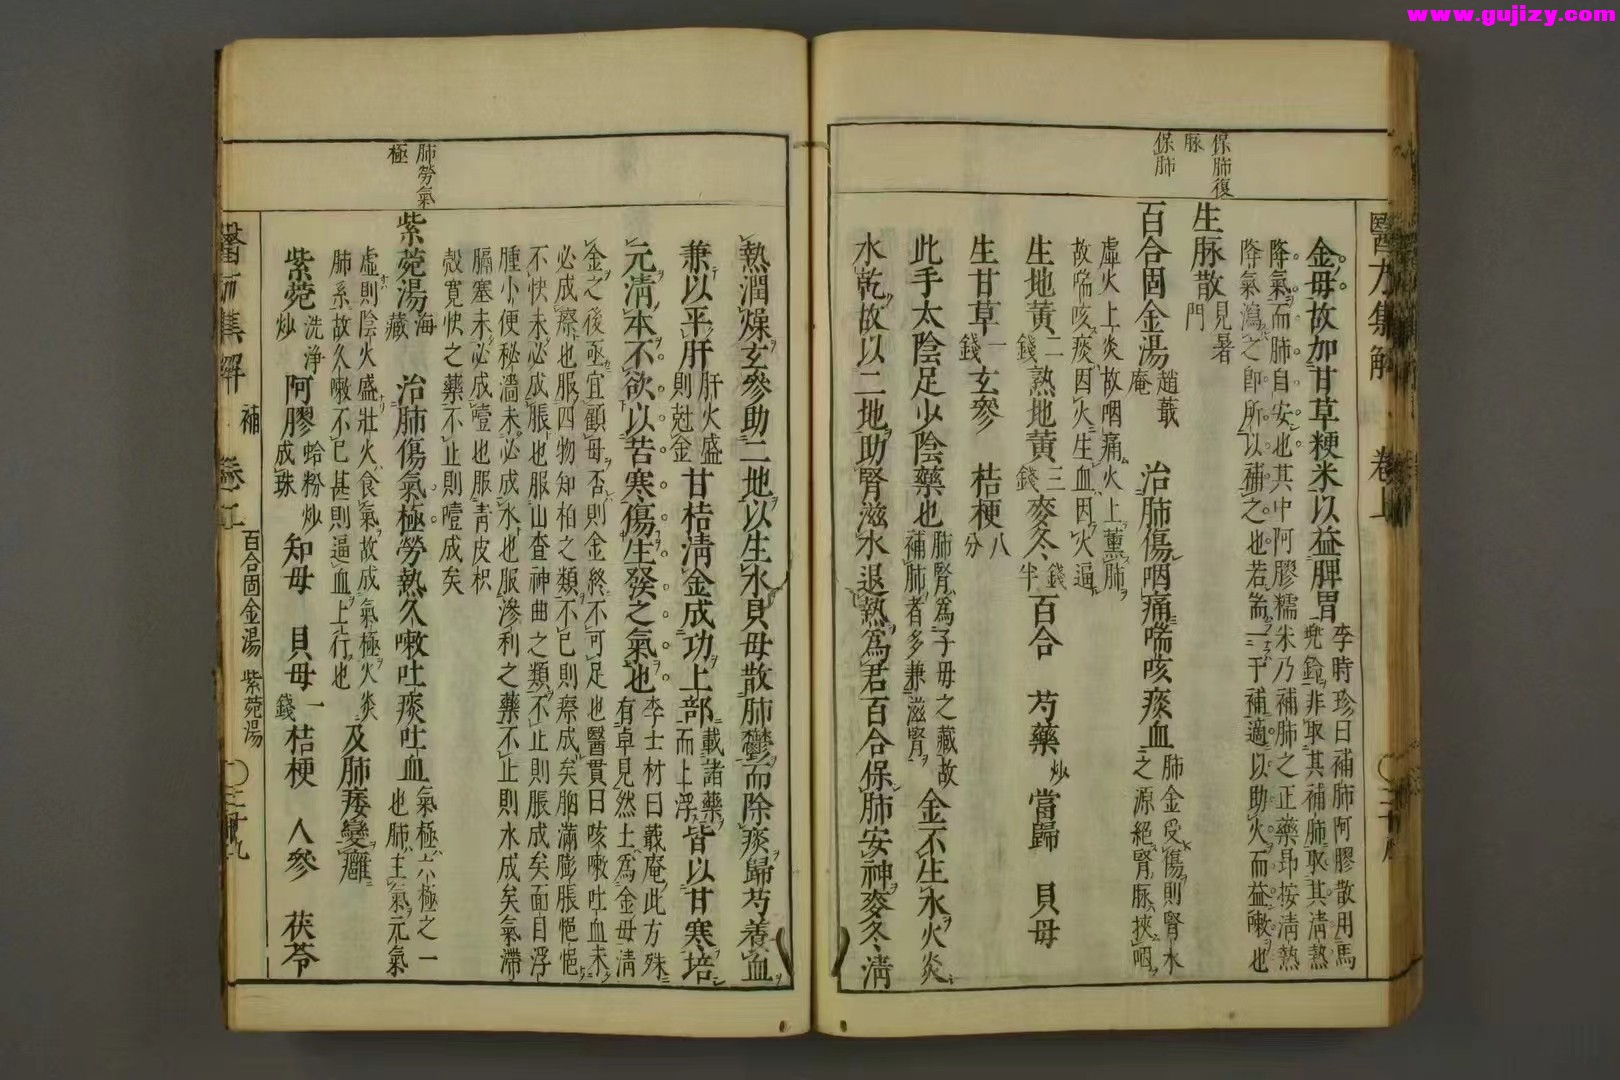 www.gujizy.com
保肺復
脉
保肺
醫方集解 卷上
金母故加甘草粳米以益脾胃 李時珍曰補肺阿膠散用馬
兜鈴非取其補肺取其清熱
降氣而肺自安也其中阿膠糯米乃補肺之正藥昻按清熱
降氣瀉之卽所以補之也若耑一于補適以助火而益嗽也
生脉散 見暑
門
百合固金湯 趙蕺
庵 治肺傷咽痛喘咳痰血 肺金受傷則腎水
之源絕腎脉挾咽
虛火上炎故咽痛火上薰肺
故喘咳痰因火生血因火逼
生地黃 二
錢 熟地黃 三
錢 麥冬 錢
半 百合 芍藥 炒 當歸 貝母
生甘草 一
錢 玄參 桔梗 八
分
此手太陰足少陰藥也 肺腎爲子母之藏故
補肺者多兼滋腎 金不生水火炎
水乾故以二地助腎滋水退熱爲君百合保肺安神麥冬清
熱潤燥玄參助二地以生水貝母散肺鬱而除痰歸芍養血
兼以平肝 肝火盛
則尅金 甘桔清金成功上部 載諸藥
而上浮 皆以甘寒培
元清本不欲以苦寒傷生發之氣也 李士材曰蕺庵此方殊
有卓見然土爲金母清
金之後亟宜顧母否則金終不可足也醫貫曰咳嗽吐血未
必成瘵也服四物知柏之類不已則瘵成矣胸滿膨脹悒悒
不快未必成脹也服山查神曲之類不止則脹成矣面目浮
腫小便秘濇未必成水也服滲利之藥不止則水成矣氣滯
膈塞未必成噎也服青皮枳
殼寬快之藥不止則噎成矣
肺勞氣
極
紫菀湯 海
藏 治肺傷氣極勞熱久嗽吐痰吐血 氣極六極之一
也肺主氣元氣
虛則陰火盛壯火食氣故成氣極火炎
肺系故久嗽不已甚則逼血上行也 及肺痿變癰
紫菀 洗淨
炒 阿膠 蛤粉炒
成珠 知母 貝母 一
錢 桔梗 人參 茯苓
醫方集解 補 百合固金湯 紫菀湯 三十九